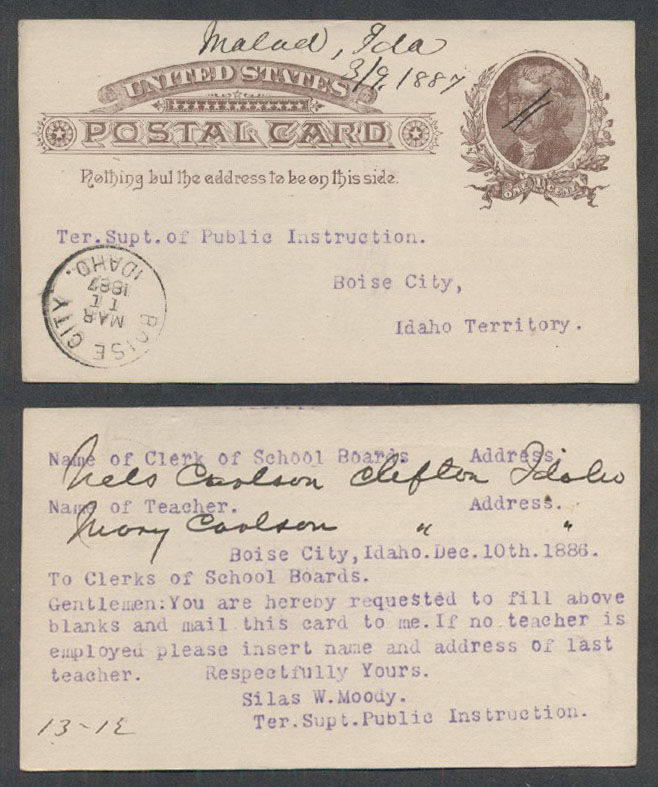 Malad, Ida
3/9, 1887
UNITED STATES
POSTAL CARD
Nothing but the address to be on this side.
ONE 1 CENT
Ter.Supt.of Public Instruction.
Boise City,
Idaho Territory.
BOISE CITY. IDAHO.
MAR
11
1887
Name of Clerk of School Boards Address.
Nels Carlson Clifton Idaho
Name of Teacher. Address.
Mary Carlson " "
Boise City,Idaho.Dec.10th.1886.
To Clerks of School Boards.
Gentlemen:You are hereby requested to fill above
blanks and mail this card to me.If no teacher is
employed please insert name and address of last
teacher. Respectfully Yours.
Silas W.Moody.
Ter.Supt.Public Instruction.